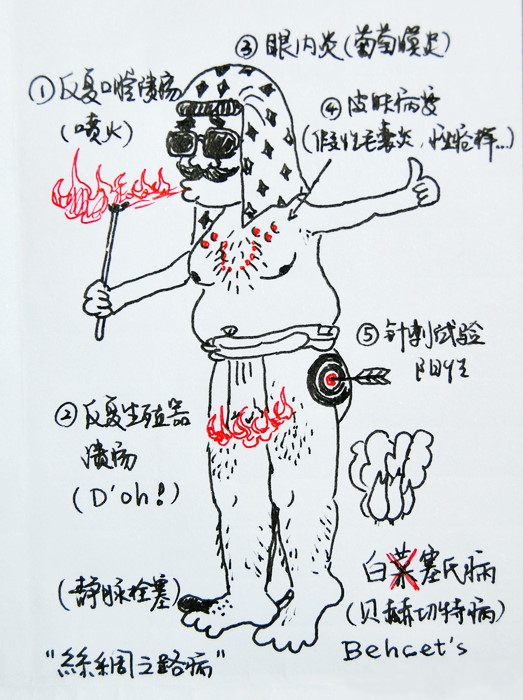 ③眼内炎(葡萄膜炎)
①反复口腔溃疡
(喷火)
④皮肤病变
(假性毛囊炎,痤疮样...)
⑤针刺试验
阳性
②反复生殖器
溃疡
(D'oh!)
白菜塞氏病
(静脉栓塞)
(贝赫切特病)
Behcet's
"絲綢之路病"